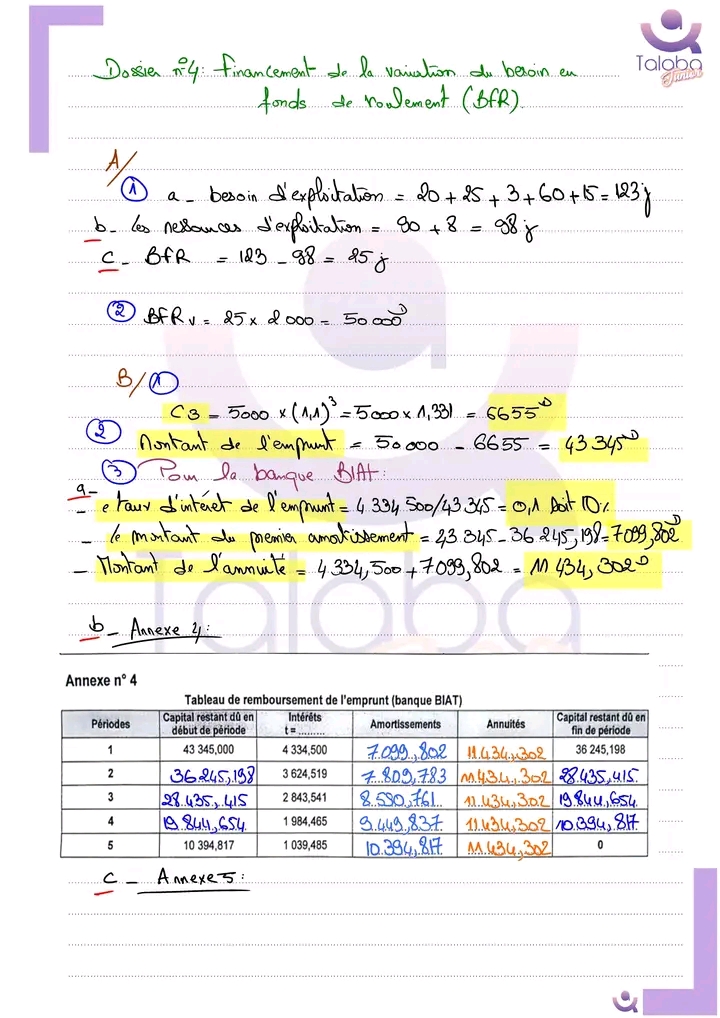 Taloba
Junior
Dossier n°4: financement de la variation du besoin en
fonds de roulement (BFR).
A/
1 a - besoin d'exploitation = 20 + 25 + 3 + 60 + 15 = 123 j
b - les ressources d'exploitation = 90 + 8 = 98 j
c - BFR = 123 - 98 = 25 j
2 BFR v = 25 x 2 000 = 50 000 D
B/ 1
C3 = 5000 x (1,1)³ = 5000 x 1,331 = 6655 D
2 Montant de l'emprunt = 50 000 - 6655 = 43 345 D
3 Pour la banque BIAT:
a -
- e taux d'intérêt de l'emprunt = 4 334.500/43 345 = 0,1 soit 10%
- le montant du premier amortissement = 43 345 - 36 245,198 = 7099,802 D
- Montant de l'annuité = 4 334,500 + 7099,802 = 11 434,302 D
Taloba
b - Annexe 4:
Annexe n° 4
Tableau de remboursement de l'emprunt (banque BIAT)
Périodes Capital restant dû en début de période Intérêts t = ......... Amortissements Annuités Capital restant dû en fin de période
1 43 345,000 4 334,500 7.099,802 11.434,302 36 245,198
2 36.245,198 3 624,519 7.809,783 11.434,302 28.435,415
3 28.435,415 2 843,541 8.590,761 11.434,302 19.844,654
4 19.844,654 1 984,465 9.449,837 11.434,302 10.394,817
5 10 394,817 1 039,485 10.394,817 11.434,302 0
c - Annexe 5: